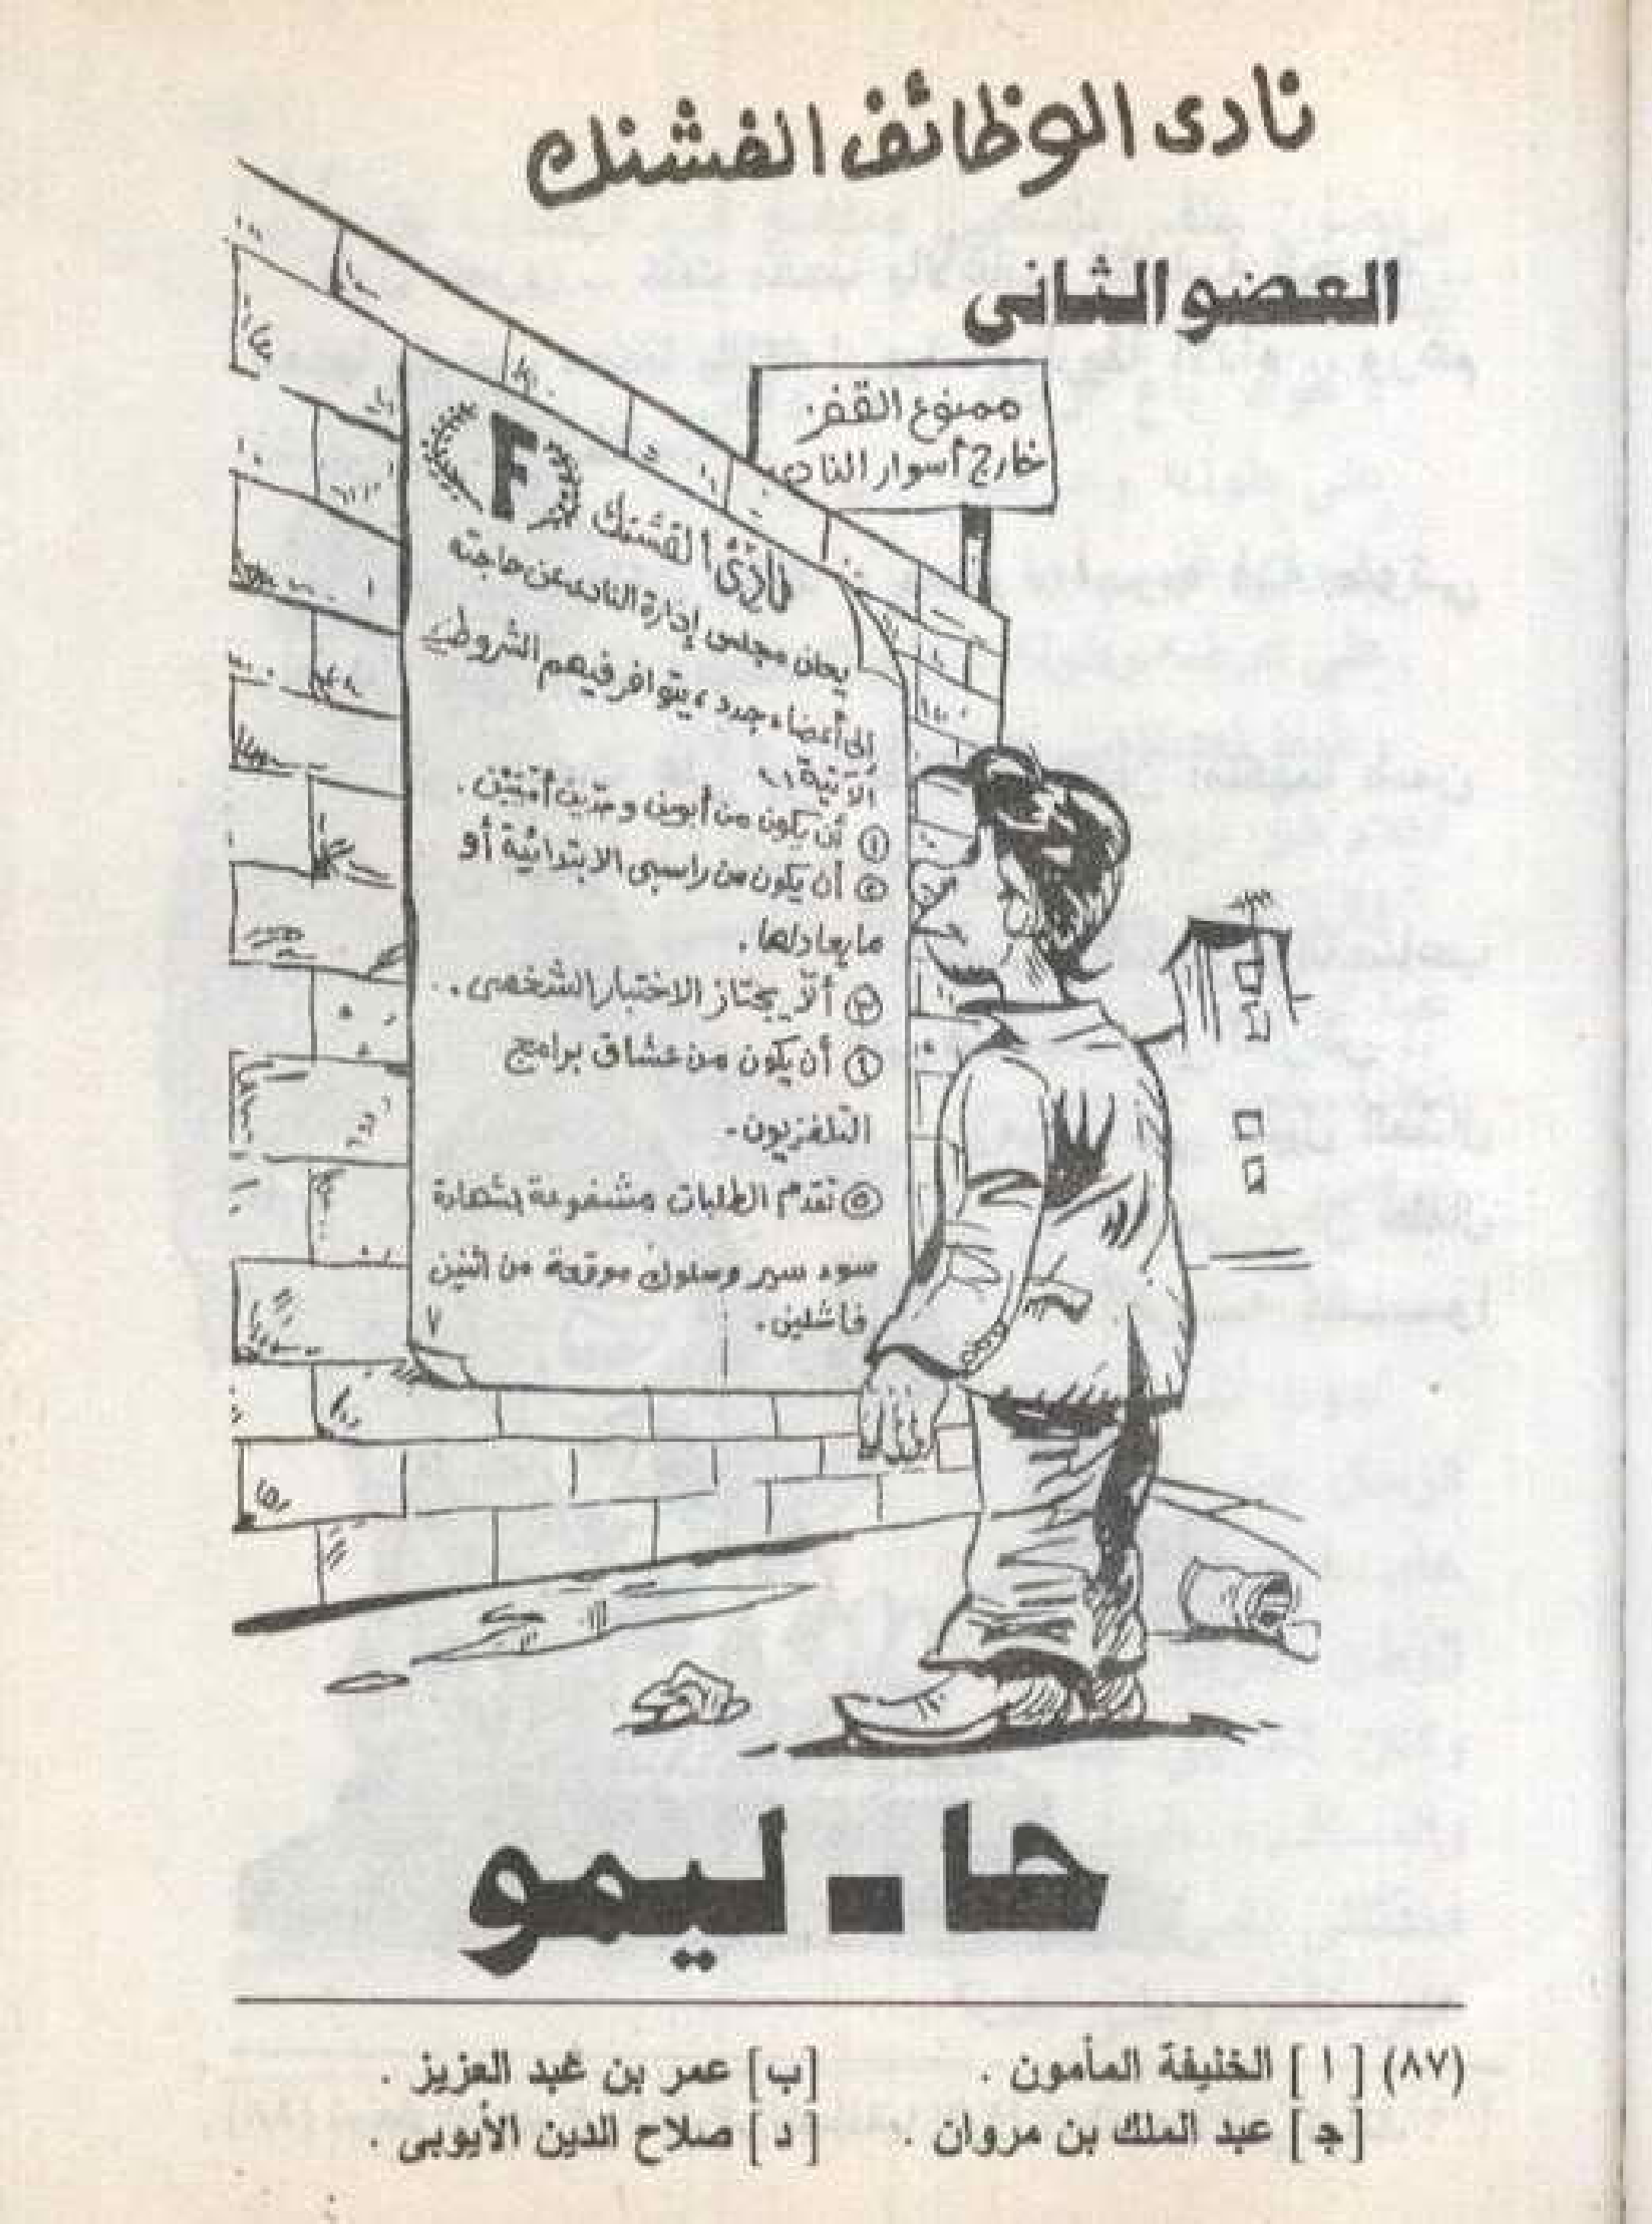 نادى الوظائف الفشنك
العضو الثانى
ممنوع القفز
خارج أسوار النادى
F
نادى الفشنك
يعلن مجلس إدارة النادى عن حاجته
إلى أعضاء جدد، يتوافر فيهم الشروط
الآتية :
١ أن يكون من أبوين وجدّين أُمّيّين .
٢ أن يكون من راسبى الابتدائية أو
ما يعادلها .
٣ ألّا يجتاز الاختبار الشخصى .
٤ أن يكون من عشاق برامج
التلفزيون .
٥ تقدم الطلبات مشفوعة بشهادة
سوء سير وسلوك موقعة من اثنين
فاشلين .
حا - ليمو
(٨٧) [ ا ] الخليفة المأمون . [ب] عمر بن عبد العزيز .
[جـ] عبد الملك بن مروان . [ د ] صلاح الدين الأيوبى .